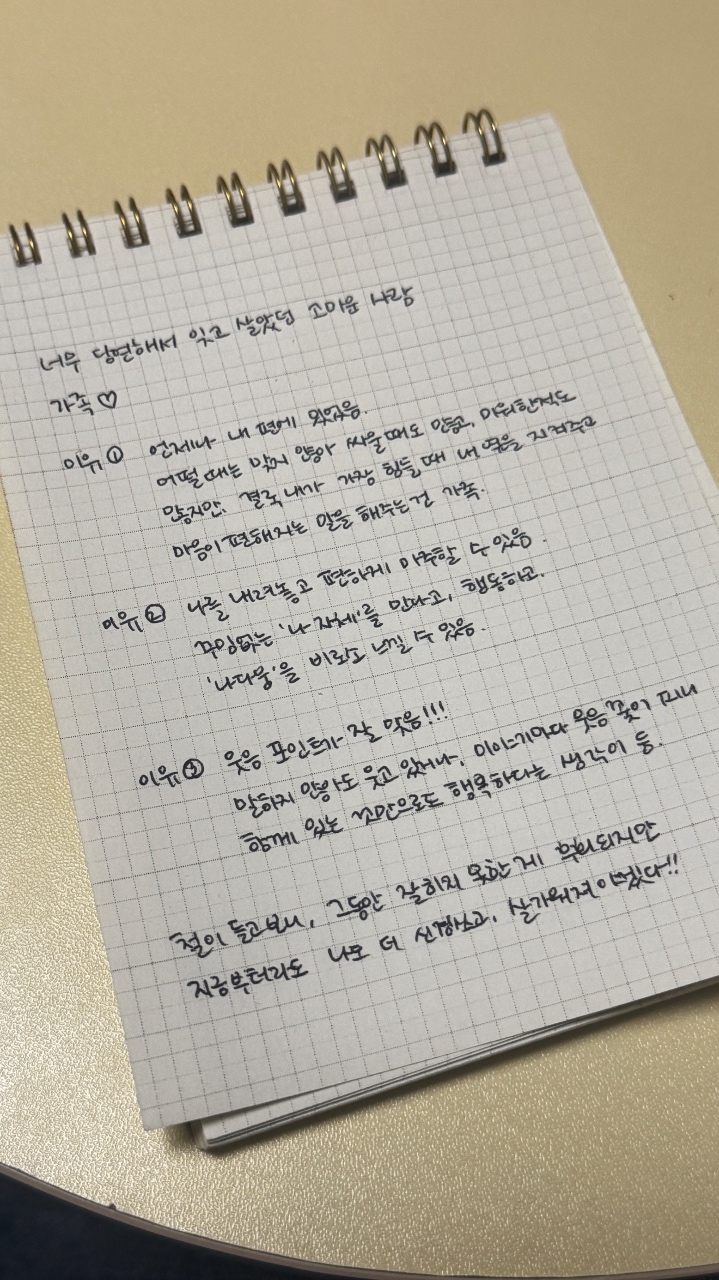 너무 당연해서 잊고 살았던 고마운 사람
가족♡
이유① 언제나 내 편에 있었음.
어떨 때는 맞지 않아 싸울 때도 많고, 미워한적도
많지만, 결국 내가 가장 힘들 때 내 옆을 지켜주고
마음이 편해지는 말을 해주는 건 가족.
이유② 나를 내려놓고 편하게 마주할 수 있음.
꾸밈없는 '나 자체'를 만나고, 행동하고.
'나다움'을 비로소 느낄 수 있음.
이유③ 웃음 포인트가 잘 맞음!!!
말하지 않아도 웃고 있거나, 이야기마다 웃음꽃이 피니
함께 있는 것만으로도 행복하다는 생각이 듬.
철이 들고보니, 그동안 잘하지 못한 게 후회되지만
지금부터라도 나도 더 신경쓰고, 살가워져야겠다!!